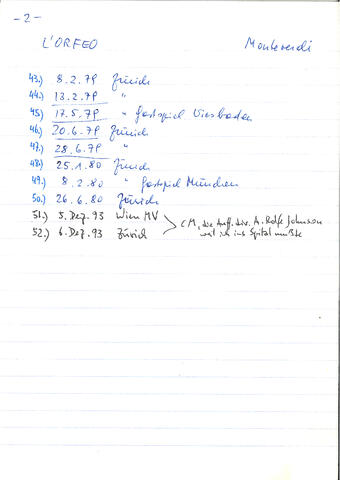 - 2 -
L'ORFEO Monteverdi
43.) 8.2.79 Zürich
44.) 13.2.79 "
45.) 17.5.79 " Gastspiel Wiesbaden
46.) 20.6.79 Zürich
47.) 28.6.79 "
48.) 25.1.80 Zürich
49.) 8.2.80 " Gastspiel München
50.) 26.6.80 Zürich
51.) 5. Dez. 93 Wien MV
52.) 6. Dez. 93 Zürich
CM, die Auff. dir. A. Rolfe Johnson
weil ich ins Spital mußte